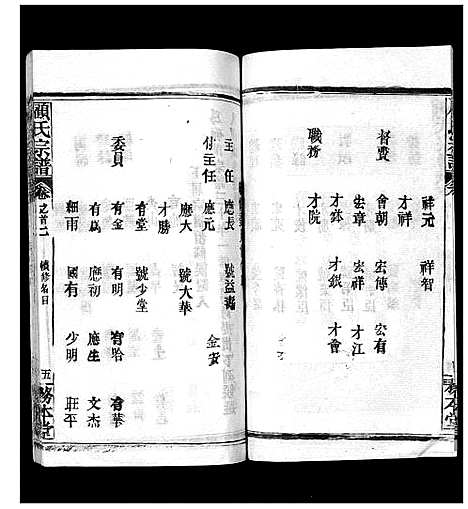 祥元　祥智
才祥
督費　會朝　宏傳　宏有
宏章　宏祥　才江
才銀　才會
職務　才院
主任　應長　號益
付主任　應元　金安
應大　號大華
才勝
有堂　號少堂
委員　有金　有明　有華
有為　應初　應生　文杰
細雨　國有　少明　旺平
顧氏宗譜　卷之首二　續修名目　五　務本堂